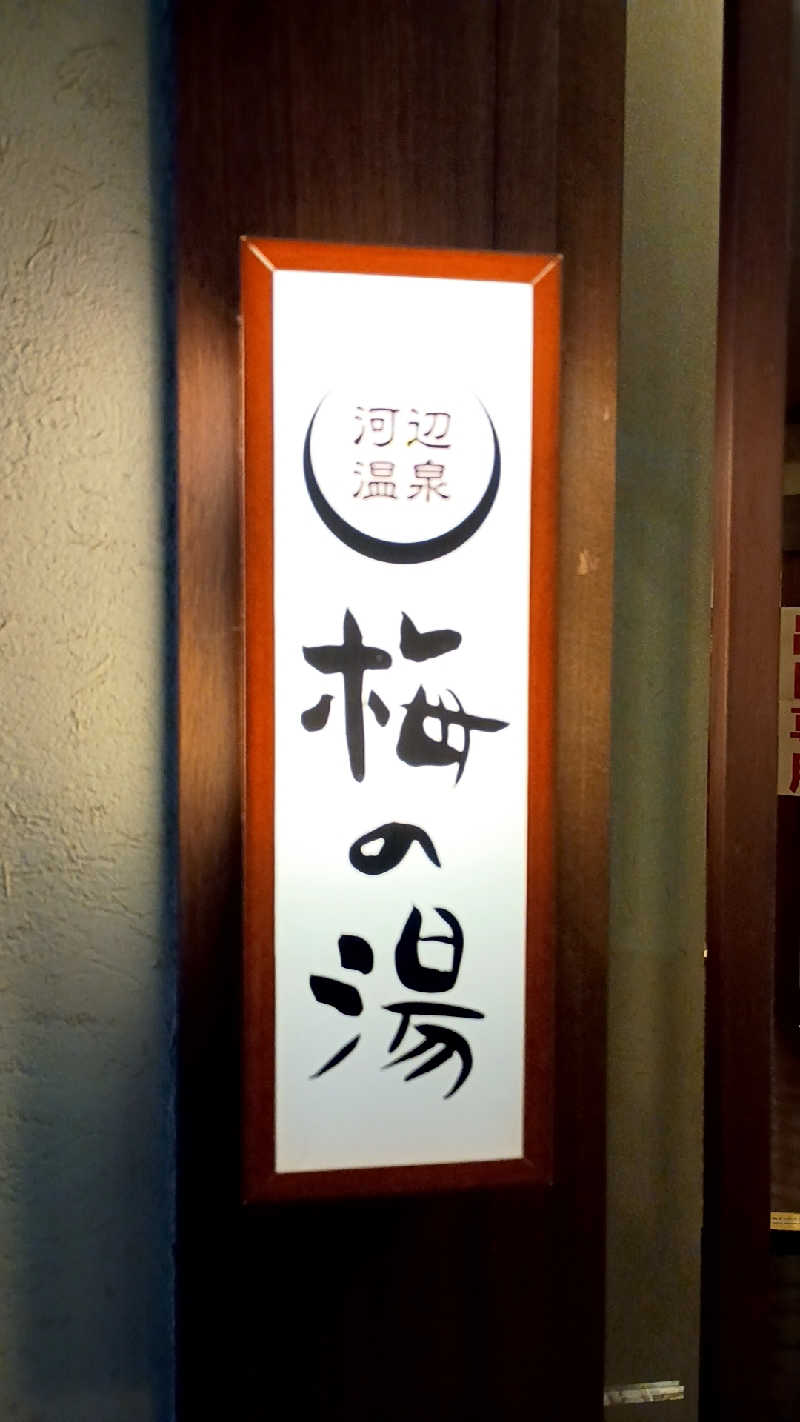 河辺
温泉
梅の湯